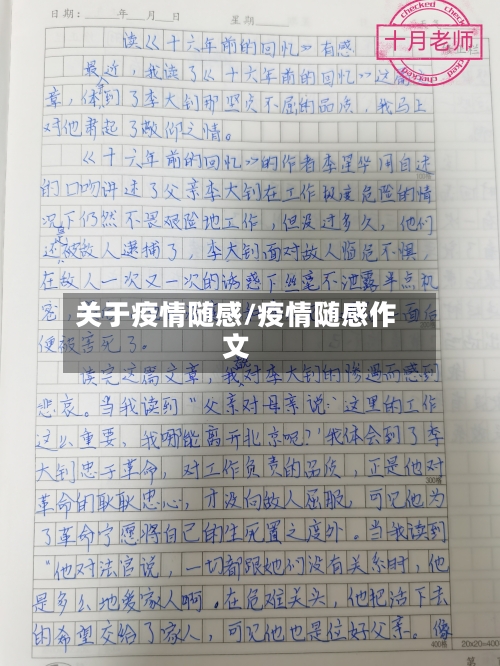 日期：____年__月__日 星期____
checked
十月老师
checked
读《十六年前的回忆》有感
最近，我读了《十六年前的回忆》这篇文
章，体会到了李大钊那坚贞不屈的品质，我马上
对他肃起了敬仰之情。
《十六年前的回忆》的作者李星华用自述
的口吻讲述了父亲李大钊在工作极度危险的情
况下仍然不畏艰险地工作，但没过多久，他们
还是被敌人逮捕了，李大钊面对敌人临危不惧，
在敌人一次又一次的诱惑下丝毫不泄露半点机
密，
关于疫情随感/疫情随感作
文
面后
便被害死了。
读完这篇文章，我对李大钊的惨遇而感到
悲哀。当我读到“父亲对母亲说：‘这里的工作
这么重要，我哪能离开北京呢？’我体会到了李
大钊忠于革命，对工作负责的品质，正是他对
300格
革命的耿耿忠心，才没向敌人屈服，可见他为
了革命宁愿将自己的生死置之度外。当我读到
“他对法官说，一切都跟她们没有关系时，他
是多么地爱家人啊。在危难关头，他把活下去
的希望交给了家人，可见他也是位好父亲。像
400格
20x20=400
第